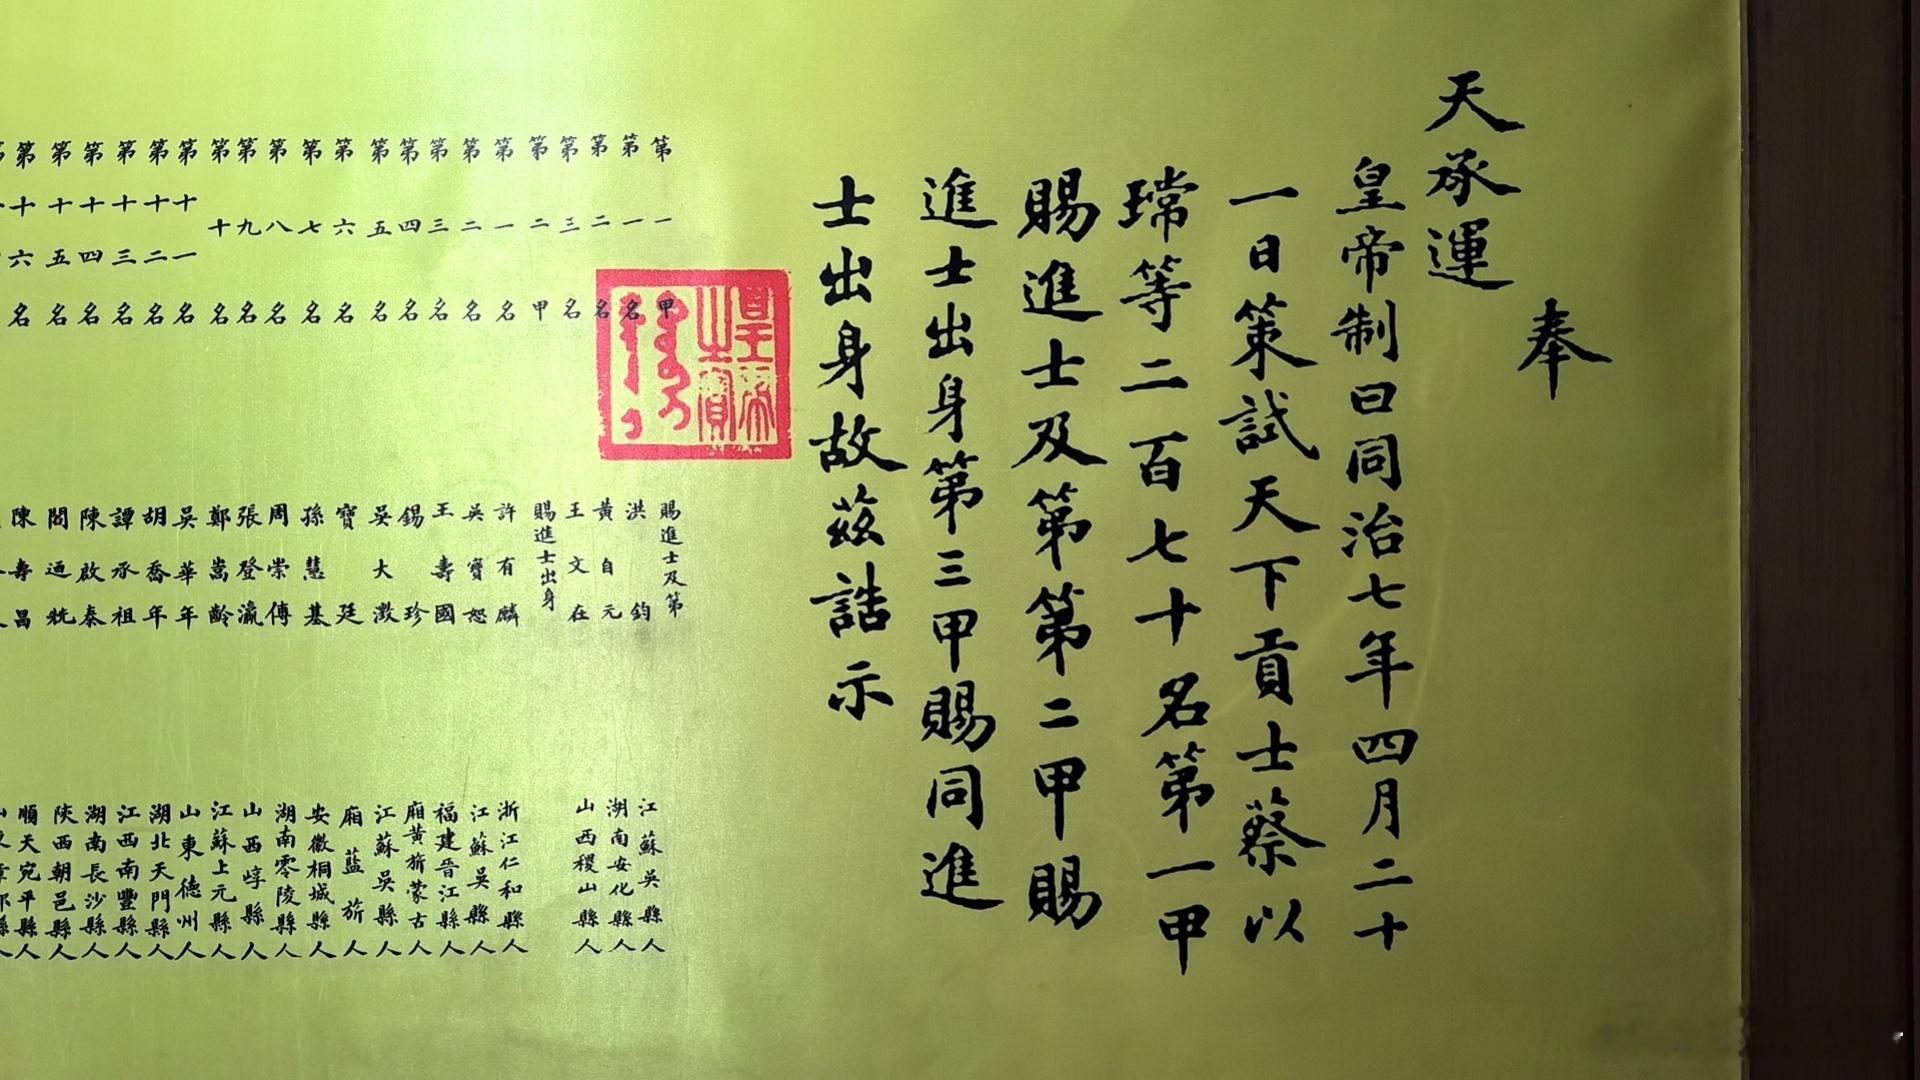 奉
天承運
皇帝制曰同治七年四月二十
一日策試天下貢士蔡以
瑺等二百七十名第一甲
賜進士及第第二甲賜
進士出身第三甲賜同進
士出身故茲誥示
皇帝
之寶
第一甲 賜進士及第
第一名 洪鈞 江蘇吳縣人
第二名 黃自元 湖南安化縣人
第三名 王文在 山西稷山縣人
第二甲 賜進士出身
第一名 許有麟 浙江仁和縣人
第二名 吳寶恕 江蘇吳縣人
第三名 王壽國 福建晉江縣人
第四名 錫珍 廂黃旂蒙古人
第五名 吳大澂 江蘇吳縣人
第六名 寶廷 廂藍旂人
第七名 孫慧基 安徽桐城縣人
第八名 周崇傅 湖南零陵縣人
第九名 張登瀛 山西崞縣人
第十名 鄭嵩齡 江蘇上元縣人
第十一名 吳華年 山東德州人
第十二名 胡喬年 湖北天門縣人
第十三名 譚承祖 江西南豐縣人
第十四名 陳啟泰 湖南長沙縣人
第十五名 閻迺兟 陝西朝邑縣人
第十六名 陳壽昌 順天宛平縣人